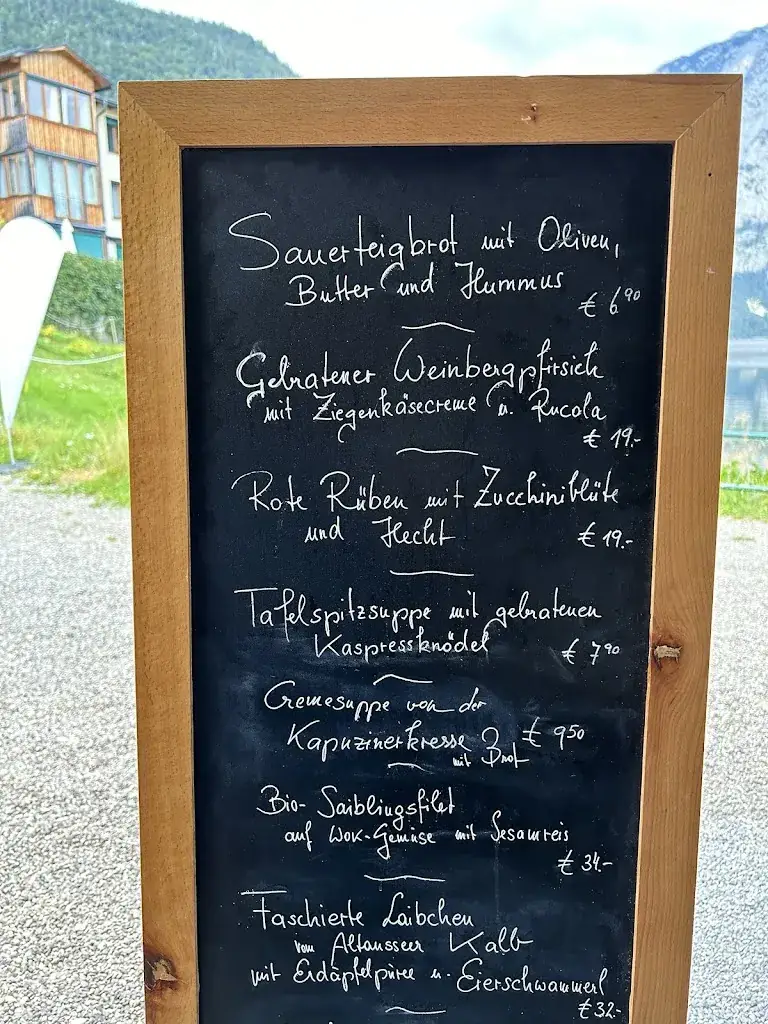 Sauerteigbrot mit Oliven,
Butter und Hummus
€ 6⁹⁰
Gebratener Weinbergpfirsich
mit Ziegenkäsecreme u. Rucola
€ 19.-
Rote Rüben mit Zucchiniblüte
und Hecht € 19.-
Tafelspitzsuppe mit gebratenen
Kaspressknödel € 7⁹⁰
Cremesuppe von der
Kapuzinerkresse € 9⁵⁰
mit Brot
Bio-Saiblingsfilet
auf Wok-Gemüse mit Sesamreis
€ 34.-
Faschierte Laibchen
vom Altausseer Kalb
mit Erdäpfelpüree u. Eierschwammerl
€ 32.-